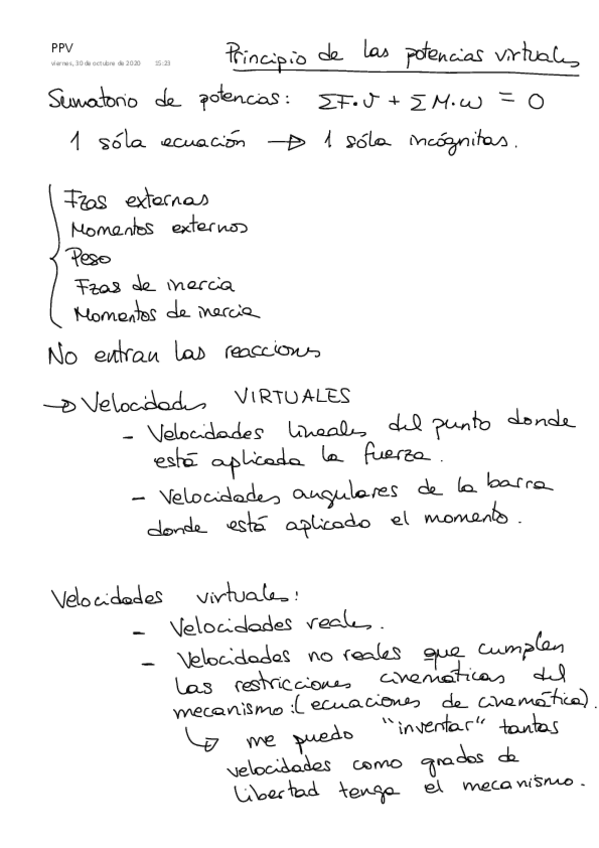 PPV
viernes, 30 de octubre de 2020 15:23
Principio de las potencias virtuales
Sumatorio de potencias: ΣF·v + ΣM·ω = 0
1 sóla ecuación → 1 sóla incógnitas.
Fzas externas
Momentos externos
Peso
Fzas de inercia
Momentos de inercia
No entran las reacciones
→ Velocidades VIRTUALES
- Velocidades lineales del punto donde
está aplicada la fuerza.
- Velocidades angulares de la barra
donde está aplicado el momento.
Velocidades virtuales:
- Velocidades reales.
- Velocidades no reales que cumplen
las restricciones cinemáticas del
mecanismo:(ecuaciones de cinemática).
↳ me puedo "inventar" tantas
velocidades como grados de
libertad tenga el mecanismo.